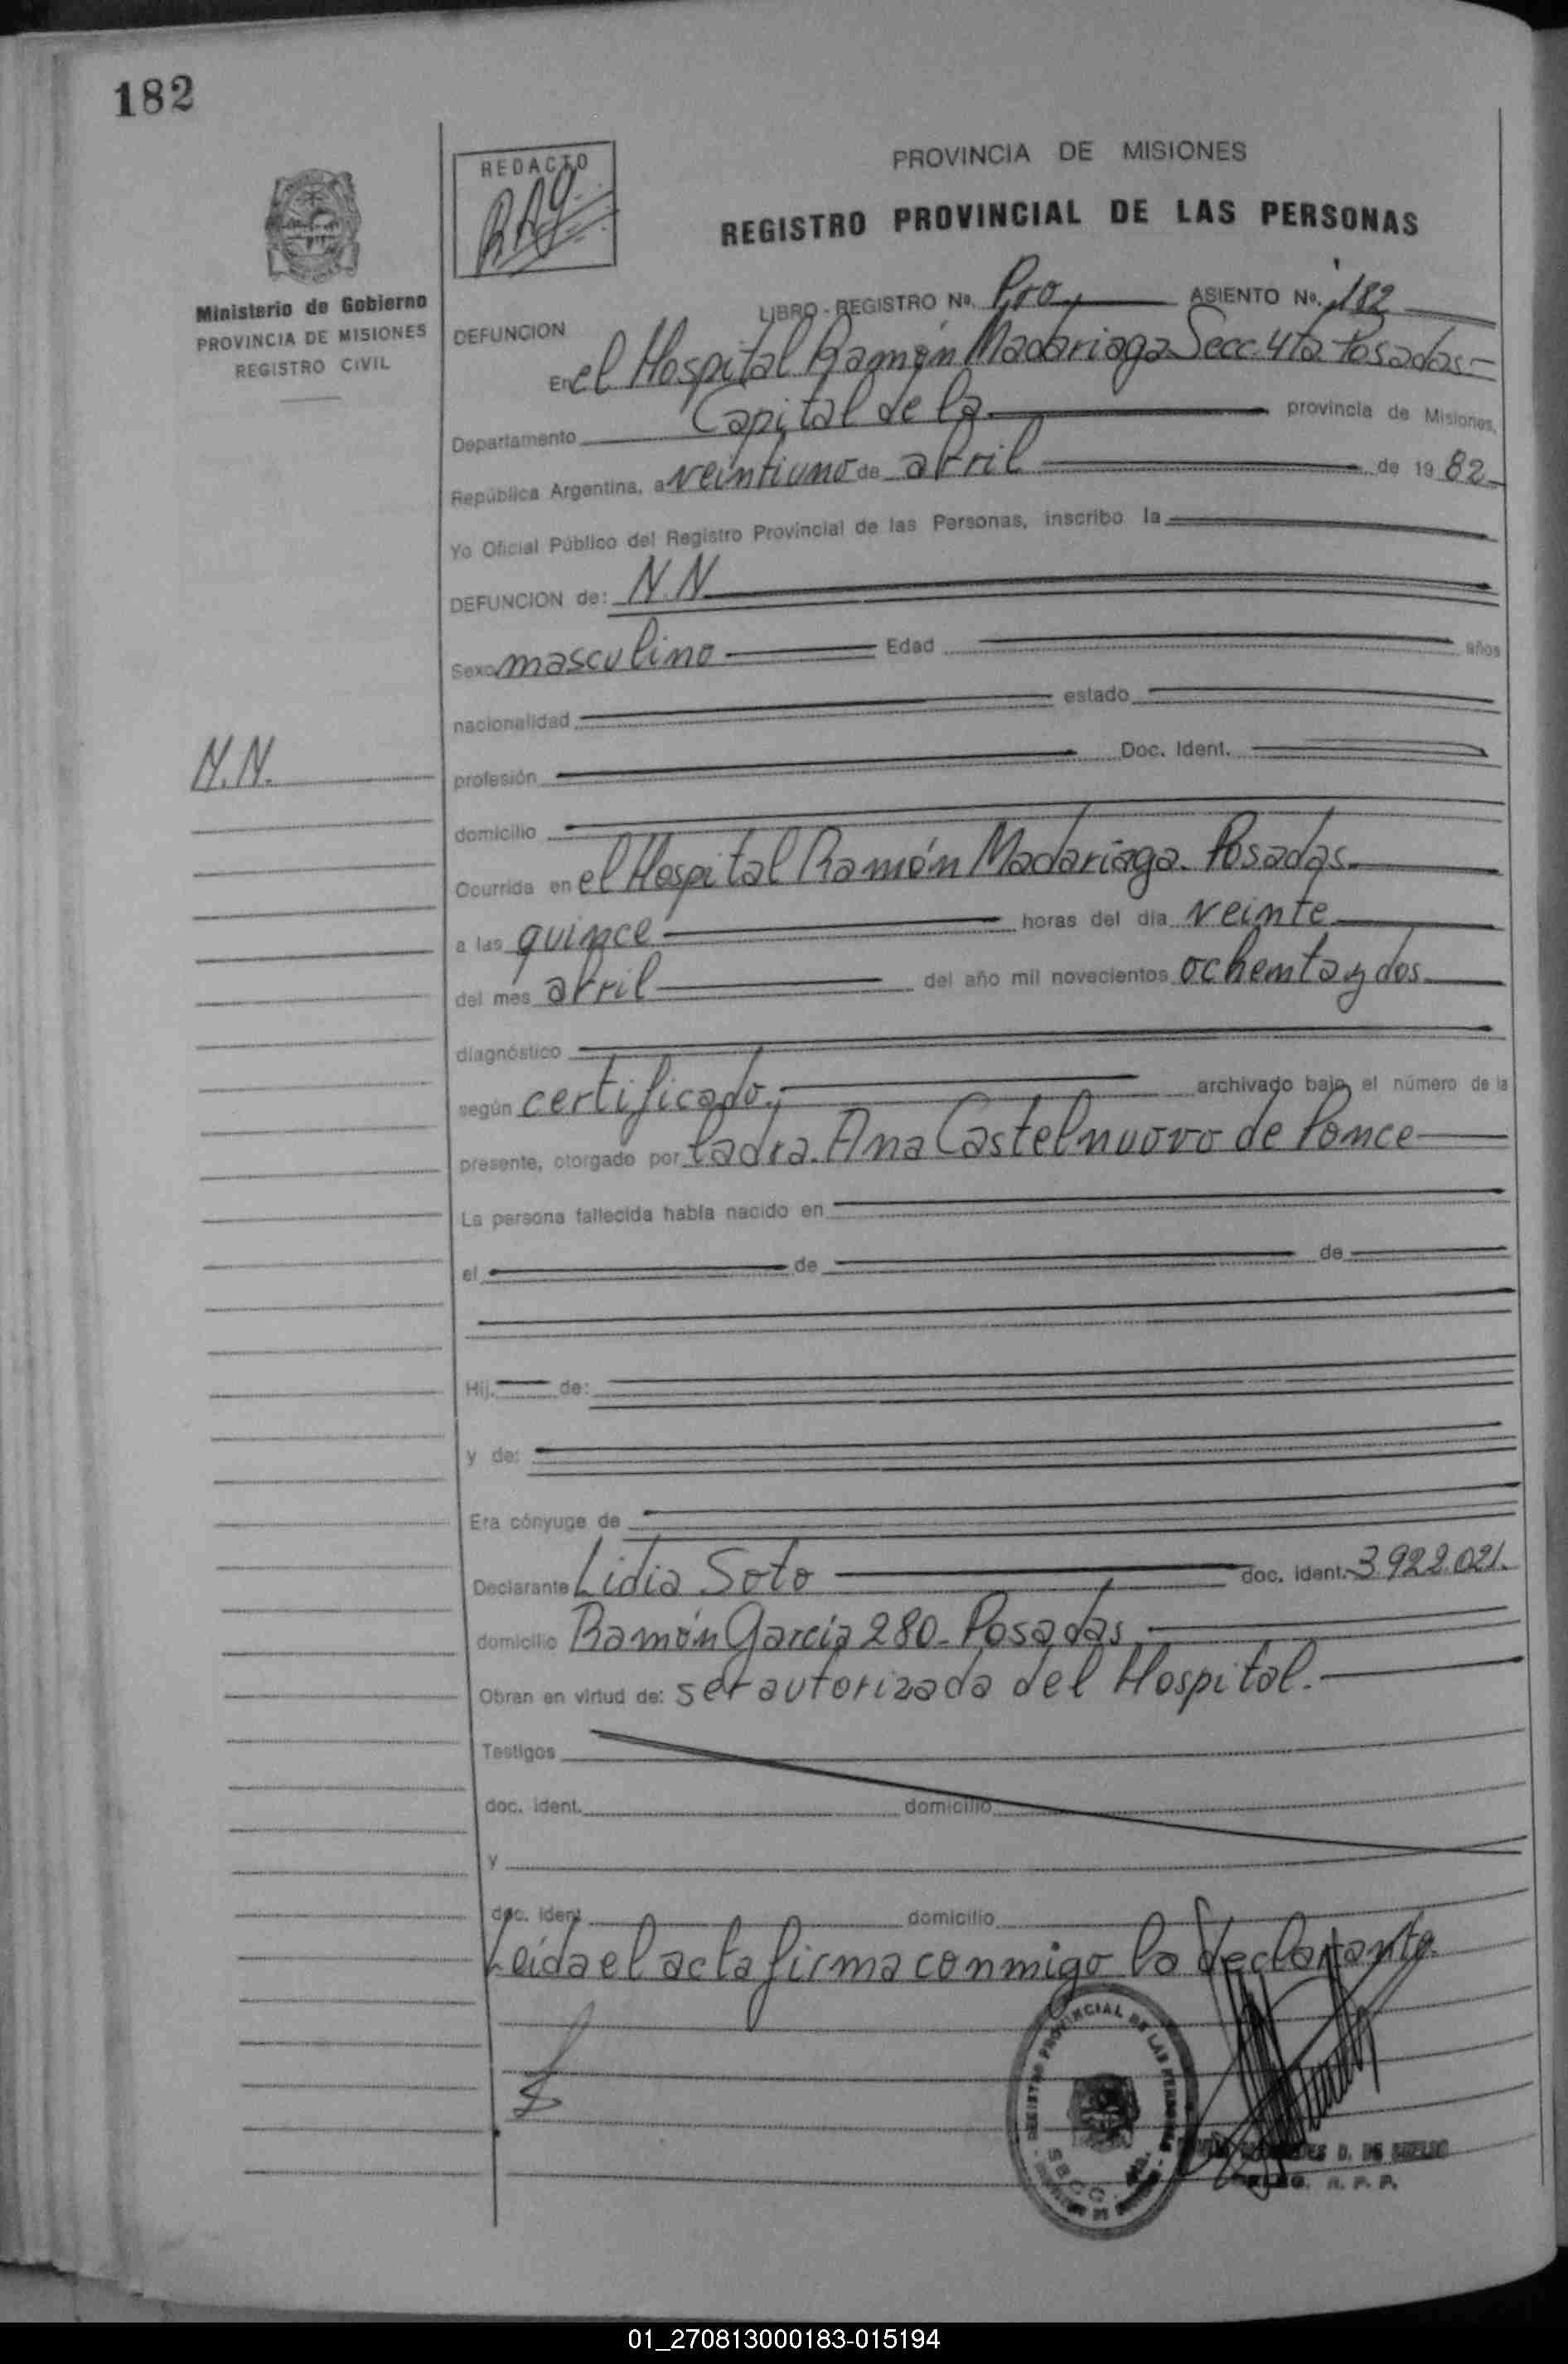 182
REDACTO
PROVINCIA DE MISIONES
REGISTRO PROVINCIAL DE LAS PERSONAS
Ministerio de Gobierno
PROVINCIA DE MISIONES
REGISTRO CIVIL
LIBRO - REGISTRO No. ASIENTO No. 182
DEFUNCION
En el Hospital Ramón Madariaga Secc. 4ta Posadas
Departamento Capital de la provincia de Misiones,
República Argentina, a veintiuno de abril de 1982
Yo Oficial Público del Registro Provincial de las Personas, inscribo la
DEFUNCION de: N.N
Sexo masculino Edad años
nacionalidad estado
N.N.
profesión Doc. Ident.
domicilio
Ocurrida en el Hospital Ramón Madariaga. Posadas.
a las quince horas del día veinte
del mes abril del año mil novecientos ochenta y dos
diagnóstico
según certificado. archivado bajo el número de la
presente, otorgado por la dra. Ana Castelnuovo de Ponce
La persona fallecida había nacido en
el de de
Hij. de:
y de:
Era cónyuge de
Declarante Lidia Soto doc. ident. 3.922.021.
domicilio Ramón García 280- Posadas
Obran en virtud de: ser autorizada del Hospital.
Testigos
doc. ident. domicilio
y
doc. ident domicilio
Leída el acta firma conmigo la declarante.
REGISTRO PROVINCIAL DE LAS PERSONAS
SECC.
R. P. P.
01_270813000183-015194